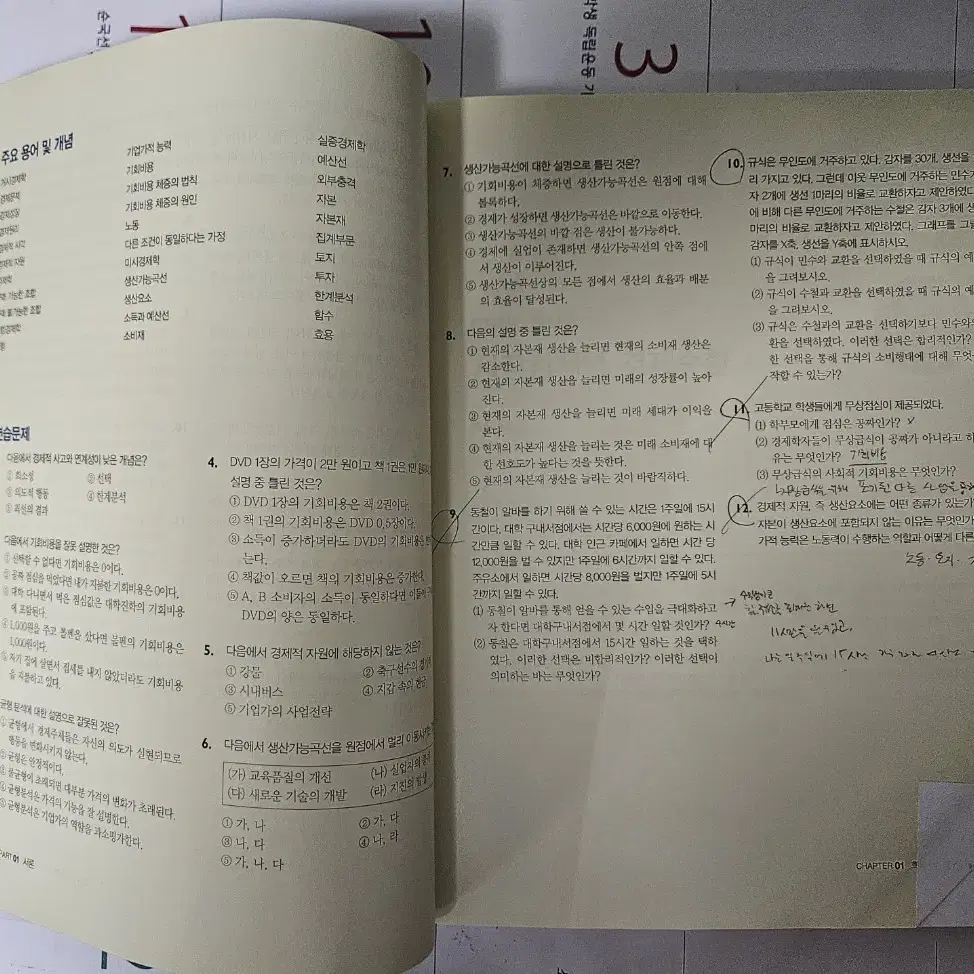 3
주요 용어 및 개념
기업가적 능력
기회비용
기회비용 체증의 법칙
기회비용 체증의 원인
노동
다른 조건이 동일하다는 가정
미시경제학
생산가능곡선
생산요소
소득과 예산선
소비재
실증경제학
예산선
외부충격
자본
자본재
집계부문
토지
투자
한계분석
함수
효용
연습문제
다음에서 경제적 사고와 연계성이 낮은 개념은?
① 희소성 ② 선택
③ 의도적 행동 ④ 한계분석
⑤ 최선의 결과
다음에서 기회비용을 잘못 설명한 것은?
① 선택할 수 없다면 기회비용은 0이다.
② 공짜 점심을 먹었다면 내가 지불한 기회비용은 0이다.
③ 대학 다니면서 먹은 점심값은 대학진학의 기회비용
에 포함된다.
④ 1,000원을 주고 볼펜을 샀다면 볼펜의 기회비용은
1,000원이다.
⑤ 자기 집에 살면서 집세를 내지 않았더라도 기회비용
을 지불하고 있다.
균형 분석에 대한 설명으로 잘못된 것은?
① 균형에서 경제주체들은 자신의 의도가 실현되므로
행동을 변화시키지 않는다.
② 균형은 안정적이다.
③ 불균형이 초래되면 대부분 가격의 변화가 초래된다.
④ 균형분석은 가격의 기능을 잘 설명한다.
⑤ 균형분석은 기업가의 역할을 과소평가한다.
PART 01 서론
4. DVD 1장의 가격이 2만 원이고 책 1권은 1만 원이다.
설명 중 틀린 것은?
① DVD 1장의 기회비용은 책 2권이다.
② 책 1권의 기회비용은 DVD 0.5장이다.
③ 소득이 증가하더라도 DVD의 기회비용은
는다.
④ 책값이 오르면 책의 기회비용은 증가한다.
⑤ A, B 소비자의 소득이 동일하다면 이들에게
DVD의 양은 동일하다.
5. 다음에서 경제적 자원에 해당하지 않는 것은?
① 강물 ② 축구선수의 경기력
③ 시내버스 ④ 지갑 속의 현금
⑤ 기업가의 사업전략
6. 다음에서 생산가능곡선을 원점에서 멀리 이동시키는
(가) 교육품질의 개선 (나) 실업자의 증가
(다) 새로운 기술의 개발 (라) 지진의 발생
① 가, 나 ② 가, 다
③ 나, 다 ④ 나, 라
⑤ 가, 나, 다
7. 생산가능곡선에 대한 설명으로 틀린 것은?
① 기회비용이 체증하면 생산가능곡선은 원점에 대해
볼록하다.
② 경제가 성장하면 생산가능곡선은 바깥으로 이동한다.
③ 생산가능곡선의 바깥 점은 생산이 불가능하다.
④ 경제에 실업이 존재하면 생산가능곡선의 안쪽 점에
서 생산이 이루어진다.
⑤ 생산가능곡선상의 모든 점에서 생산의 효율과 배분
의 효율이 달성된다.
8. 다음의 설명 중 틀린 것은?
① 현재의 자본재 생산을 늘리면 현재의 소비재 생산은
감소한다.
② 현재의 자본재 생산을 늘리면 미래의 성장률이 높아
진다.
③ 현재의 자본재 생산을 늘리면 미래 세대가 이익을
본다.
④ 현재의 자본재 생산을 늘리는 것은 미래 소비재에 대
한 선호도가 높다는 것을 뜻한다.
⑤ 현재의 자본재 생산을 늘리는 것이 바람직하다.
9. 동철이 알바를 하기 위해 쓸 수 있는 시간은 1주일에 15시
간이다. 대학 구내서점에서는 시간당 6,000원에 원하는 시
간만큼 일할 수 있다. 대학 인근 카페에서 일하면 시간 당
12,000원을 벌 수 있지만 1주일에 6시간까지 일할 수 있다.
주유소에서 일하면 시간당 8,000원을 벌지만 1주일에 5시
간까지 일할 수 있다.
(1) 동철이 알바를 통해 얻을 수 있는 수입을 극대화하고
자 한다면 대학구내서점에서 몇 시간 일할 것인가?
(2) 동철은 대학구내서점에서 15시간 일하는 것을 택하
였다. 이러한 선택은 비합리적인가? 이러한 선택이
의미하는 바는 무엇인가?
10. 규식은 무인도에 거주하고 있다. 감자를 30개, 생선을
리 가지고 있다. 그런데 이웃 무인도에 거주하는 민수가
자 2개에 생선 1마리의 비율로 교환하자고 제안하였다.
에 비해 다른 무인도에 거주하는 수철은 감자 3개에 생
마리의 비율로 교환하자고 제안하였다. 그래프를 그릴
감자를 X축, 생선을 Y축에 표시하시오.
(1) 규식이 민수와 교환을 선택하였을 때 규식의 예
을 그려보시오.
(2) 규식이 수철과 교환을 선택하였을 때 규식의 예
을 그려보시오.
(3) 규식은 수철과의 교환을 선택하기보다 민수와의
환을 선택하였다. 이러한 선택은 합리적인가?
한 선택을 통해 규식의 소비행태에 대해 무엇
작할 수 있는가?
11. 고등학교 학생들에게 무상점심이 제공되었다.
(1) 학부모에게 점심은 공짜인가?
(2) 경제학자들이 무상급식이 공짜가 아니라고 하
유는 무엇인가?
(3) 무상급식의 사회적 기회비용은 무엇인가?
12. 경제적 자원, 즉 생산요소에는 어떤 종류가 있는가
자본이 생산요소에 포함되지 않는 이유는 무엇인가
가적 능력은 노동력이 수행하는 역할과 어떻게 다른
CHAPTER 01